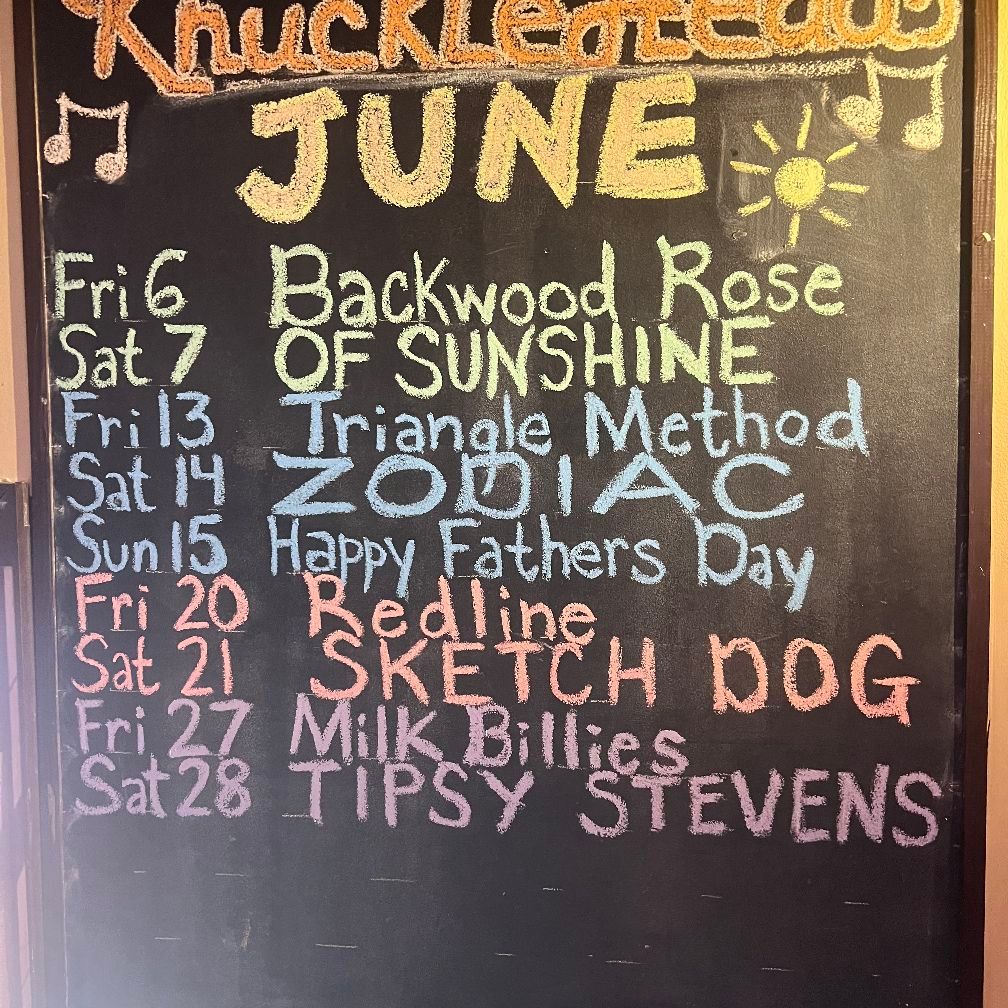 Knuckleheads
JUNE
Fri 6 Backwood Rose
Sat 7 OF SUNSHINE
Fri 13 Triangle Method
Sat 14 ZODIAC
Sun 15 Happy Fathers Day
Fri 20 Redline
Sat 21 SKETCH DOG
Fri 27 Milk Billies
Sat 28 TIPSY STEVENS